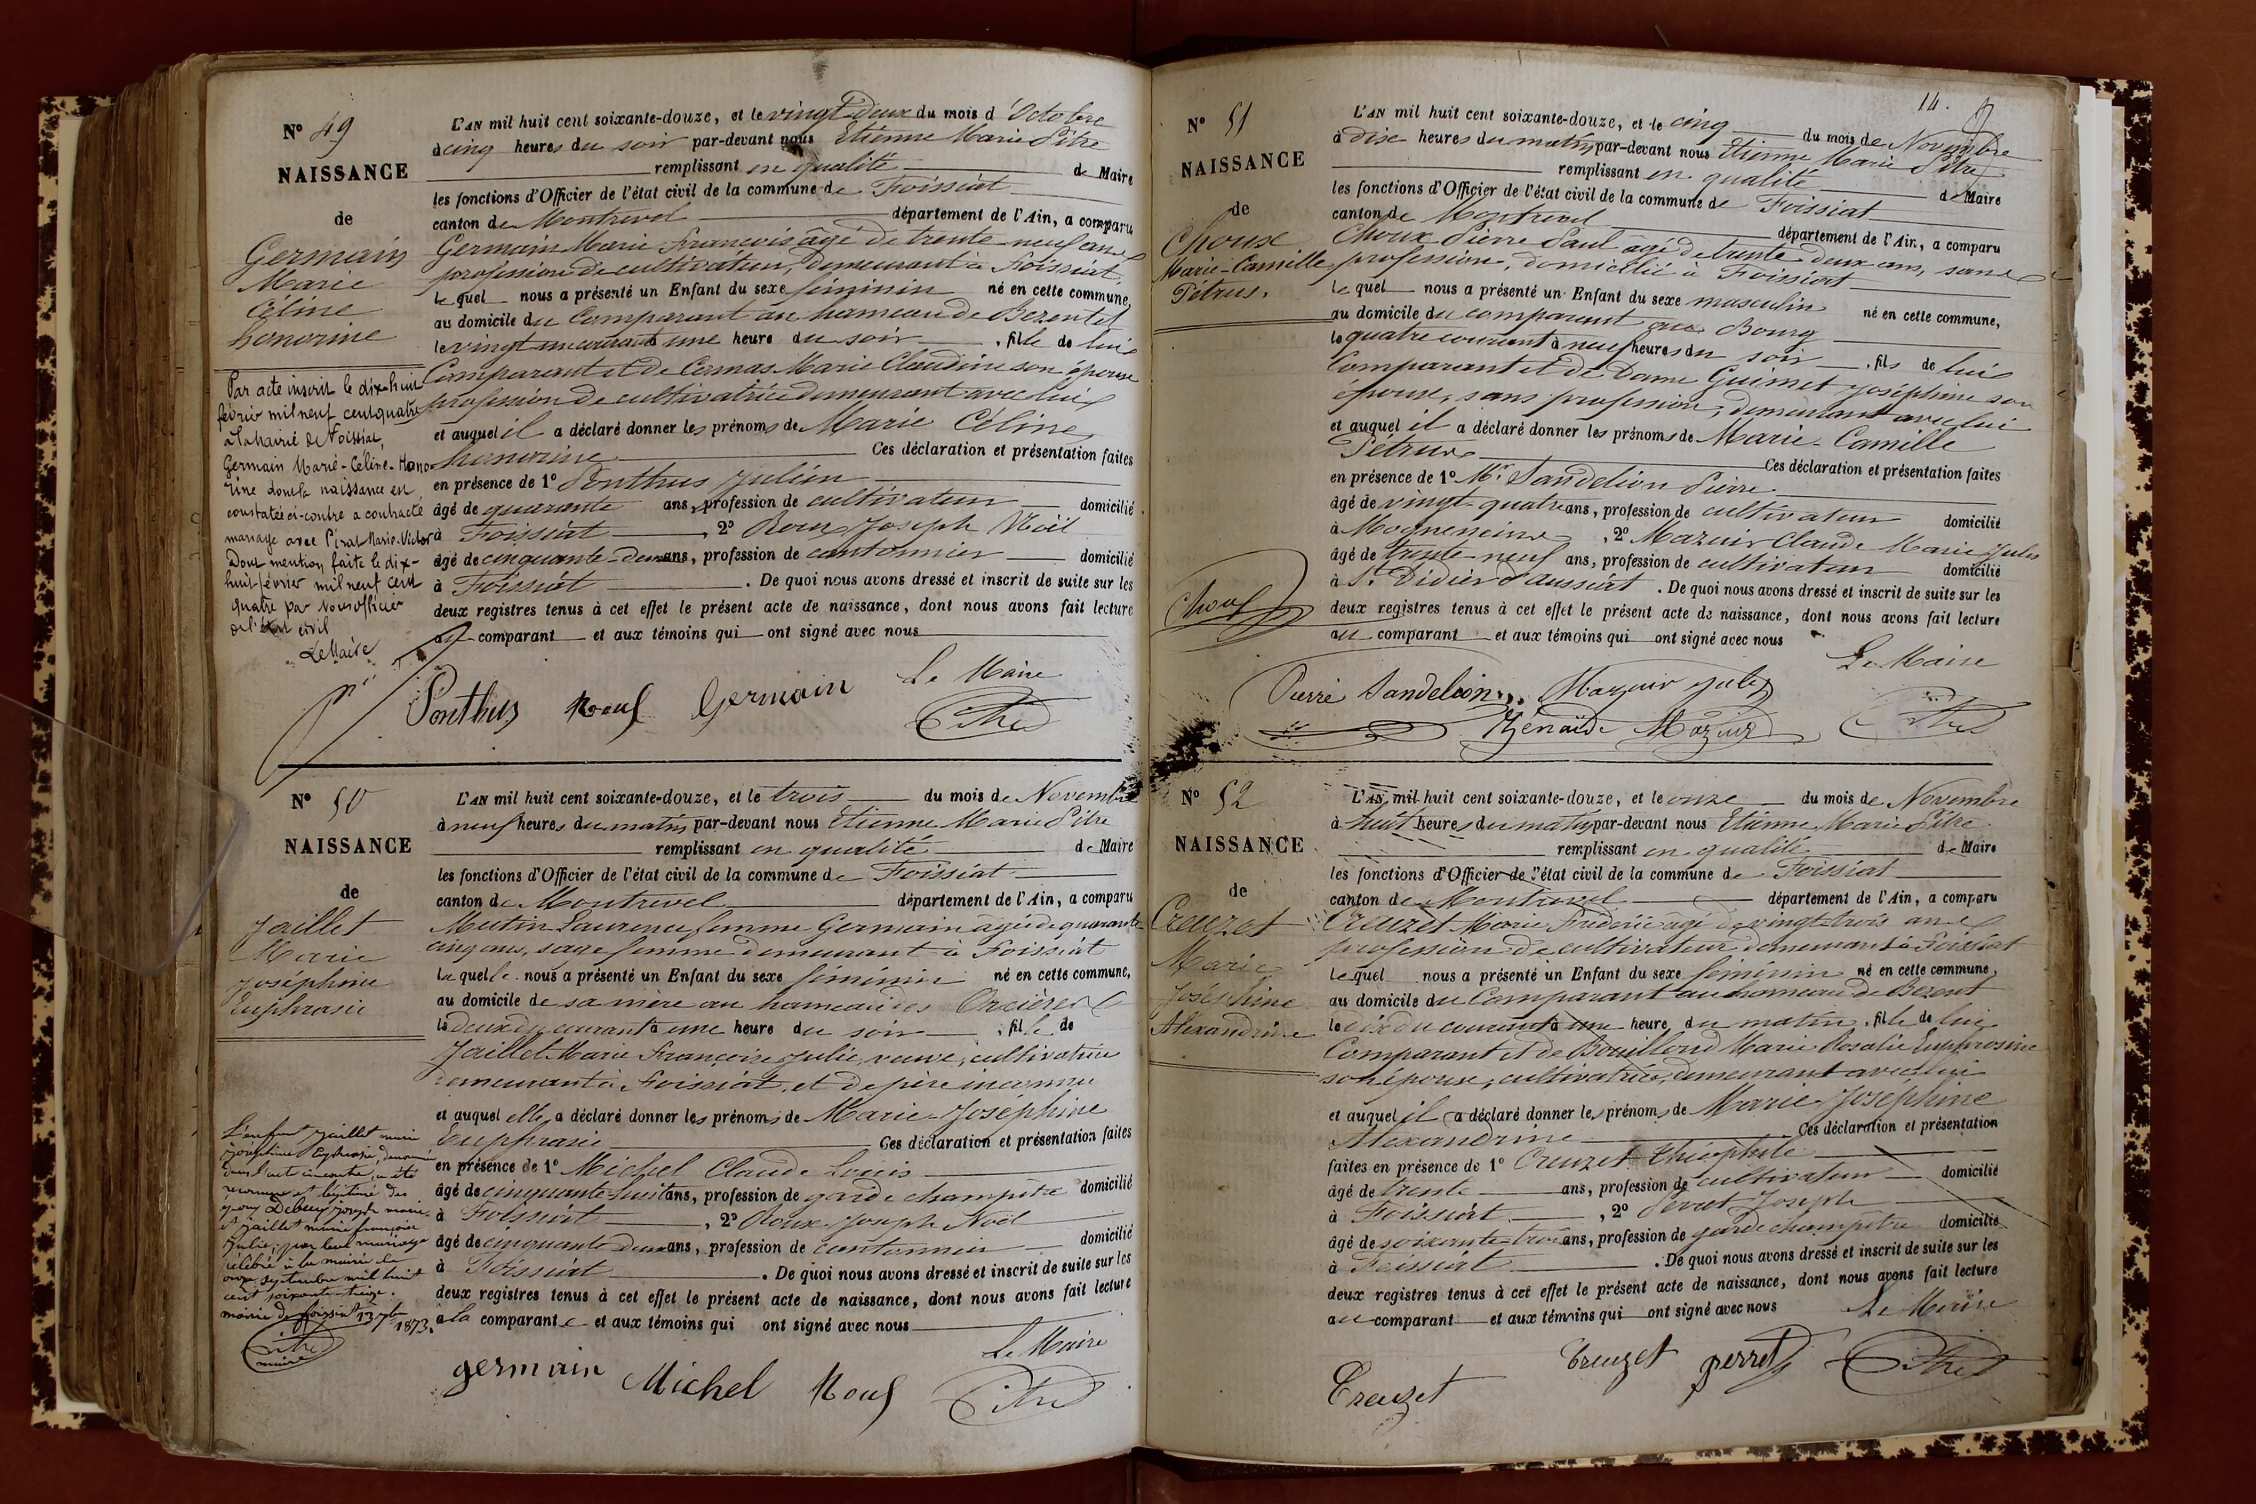 N° 49
NAISSANCE
de
Germain
Marie
Céline
honorine
Par acte inscrit le dix-huit
février mil neuf cent quatre
à la Mairie de Foissiat,
Germain Marie-Céline-Hono-
rine dont la naissance est
constatée ci-contre a contracté
mariage avec Pirat Marie-Victor
Dont mention faite le dix-
huit février mil neuf cent
quatre par nous officier
de l'état civil
Le Maire
L'AN mil huit cent soixante-douze, et le vingt deux du mois d'Octobre
à cinq heures du soir par-devant nous Etienne Marie Pitre
remplissant en qualité de Maire
les fonctions d'Officier de l'état civil de la commune de Foissiat
canton de Montrevel département de l'Ain, a comparu
Germain Marie François âgé de trente-neuf ans
profession de cultivateur, demeurant à Foissiat,
lequel nous a présenté un Enfant du sexe féminin né en cette commune,
au domicile du Comparant au hameau de Bezentet
le vingt un courant à une heure du soir, fille de lui
Comparant et de Camas Marie Claudine son épouse
profession de cultivatrice demeurant avec lui
et auquel il a déclaré donner les prénoms de Marie Céline
honorine Ces déclaration et présentation faites
en présence de 1° Ponthus Julien
âgé de quarante ans, profession de cultivateur domicilié
à Foissiat, 2° Roux Joseph Noël
âgé de cinquante-deux ans, profession de cantonnier domicilié
à Foissiat. De quoi nous avons dressé et inscrit de suite sur les
deux registres tenus à cet effet le présent acte de naissance, dont nous avons fait lecture
au comparant et aux témoins qui ont signé avec nous
Le Maire
Ponthus Roux Germain Pitre
N° 50
NAISSANCE
de
Jaillet
Marie
Joséphine
Euphrasie
L'enfant Jaillet marie
Joséphine Euphrasie, dénommée
dans l'acte ci-contre, a été
reconnue et légitimée des
époux Debeny Joseph marie
et Jaillet marie françoise
Julie, par leur mariage
célébré à la mairie le
onze septembre mil huit
cent soixante-treize.
mairie de foissiat 13 7bre
1873.
Pitre
maire
L'AN mil huit cent soixante-douze, et le trois du mois de Novembre
à neuf heures du matin par-devant nous Etienne Marie Pitre
remplissant en qualité de Maire
les fonctions d'Officier de l'état civil de la commune de Foissiat
canton de Montrevel département de l'Ain, a comparu
Mutin Laurence femme Germain âgée de quarante
cinq ans, sage femme demeurant à Foissiat
laquelle nous a présenté un Enfant du sexe féminin né en cette commune,
au domicile de sa mère au hameau des Orcières
le deux du courant à une heure du soir, fille de
Jaillet Marie Françoise Julie, veuve, cultivatrice
demeurant à Foissiat, et de père inconnu
et auquel elle a déclaré donner les prénoms de Marie-Joséphine
Euphrasie Ces déclaration et présentation faites
en présence de 1° Michel Claude Louis
âgé de cinquante-huit ans, profession de garde champêtre domicilié
à Foissiat, 2° Roux Joseph Noël
âgé de cinquante deux ans, profession de cantonnier domicilié
à Foissiat. De quoi nous avons dressé et inscrit de suite sur les
deux registres tenus à cet effet le présent acte de naissance, dont nous avons fait lecture
à la comparante et aux témoins qui ont signé avec nous
Le Maire
germain Michel Roux Pitre
14.
N° 51
NAISSANCE
de
Choux
Marie-Camille
Pétrus.
L'AN mil huit cent soixante-douze, et le cinq du mois de Novembre
à dix heures du matin par-devant nous Etienne Marie Pitre
remplissant en qualité de Maire
les fonctions d'Officier de l'état civil de la commune de Foissiat
canton de Montrevel département de l'Ain, a comparu
Choux Pierre Paul âgé de trente-deux ans, sans
profession, domicilié à Foissiat
lequel nous a présenté un Enfant du sexe masculin né en cette commune,
au domicile du comparant au Bourg
le quatre courant à neuf heures du soir, fils de lui
Comparant et de Dame Guimet Joséphine son
épouse, sans profession, demeurant avec lui
et auquel il a déclaré donner les prénoms de Marie-Camille
Pétrus Ces déclaration et présentation faites
en présence de 1° Mr Sandelion Pierre
âgé de vingt-quatre ans, profession de cultivateur domicilié
à Mogneneins, 2° Mazuir Claude Marie Jules
âgé de trente-neuf ans, profession de cultivateur domicilié
à St Didier d'aussiat. De quoi nous avons dressé et inscrit de suite sur les
deux registres tenus à cet effet le présent acte de naissance, dont nous avons fait lecture
au comparant et aux témoins qui ont signé avec nous
Le Maire
Choux
Pierre Sandelion Mazuir Jules
Zénaïde Mazuir Pitre
N° 52
NAISSANCE
de
Creuzet
Marie
Joséphine
Alexandrine
L'AN mil huit cent soixante-douze, et le onze du mois de Novembre
à huit heures du matin par-devant nous Etienne Marie Pitre
remplissant en qualité de Maire
les fonctions d'Officier de l'état civil de la commune de Foissiat
canton de Montrevel département de l'Ain, a comparu
Creuzet Marie Frédéric âgé de vingt-trois ans
profession de cultivateur demeurant à Foissiat
lequel nous a présenté un Enfant du sexe féminin né en cette commune,
au domicile du Comparant au hameau de Bezent
le dix du courant à une heure du matin, fille de lui
Comparant et de Bouilloud Marie Rosalie Euphrosine
son épouse, cultivatrice, demeurant avec lui
et auquel il a déclaré donner les prénoms de Marie-Joséphine
Alexandrine Ces déclaration et présentation
faites en présence de 1° Creuzet Théophile
âgé de trente ans, profession de cultivateur domicilié
à Foissiat, 2° Perret Joseph
âgé de soixante-trois ans, profession de garde champêtre domicilié
à Foissiat. De quoi nous avons dressé et inscrit de suite sur les
deux registres tenus à cet effet le présent acte de naissance, dont nous avons fait lecture
au comparant et aux témoins qui ont signé avec nous
Le Maire
Creuzet Creuzet perret Pitre